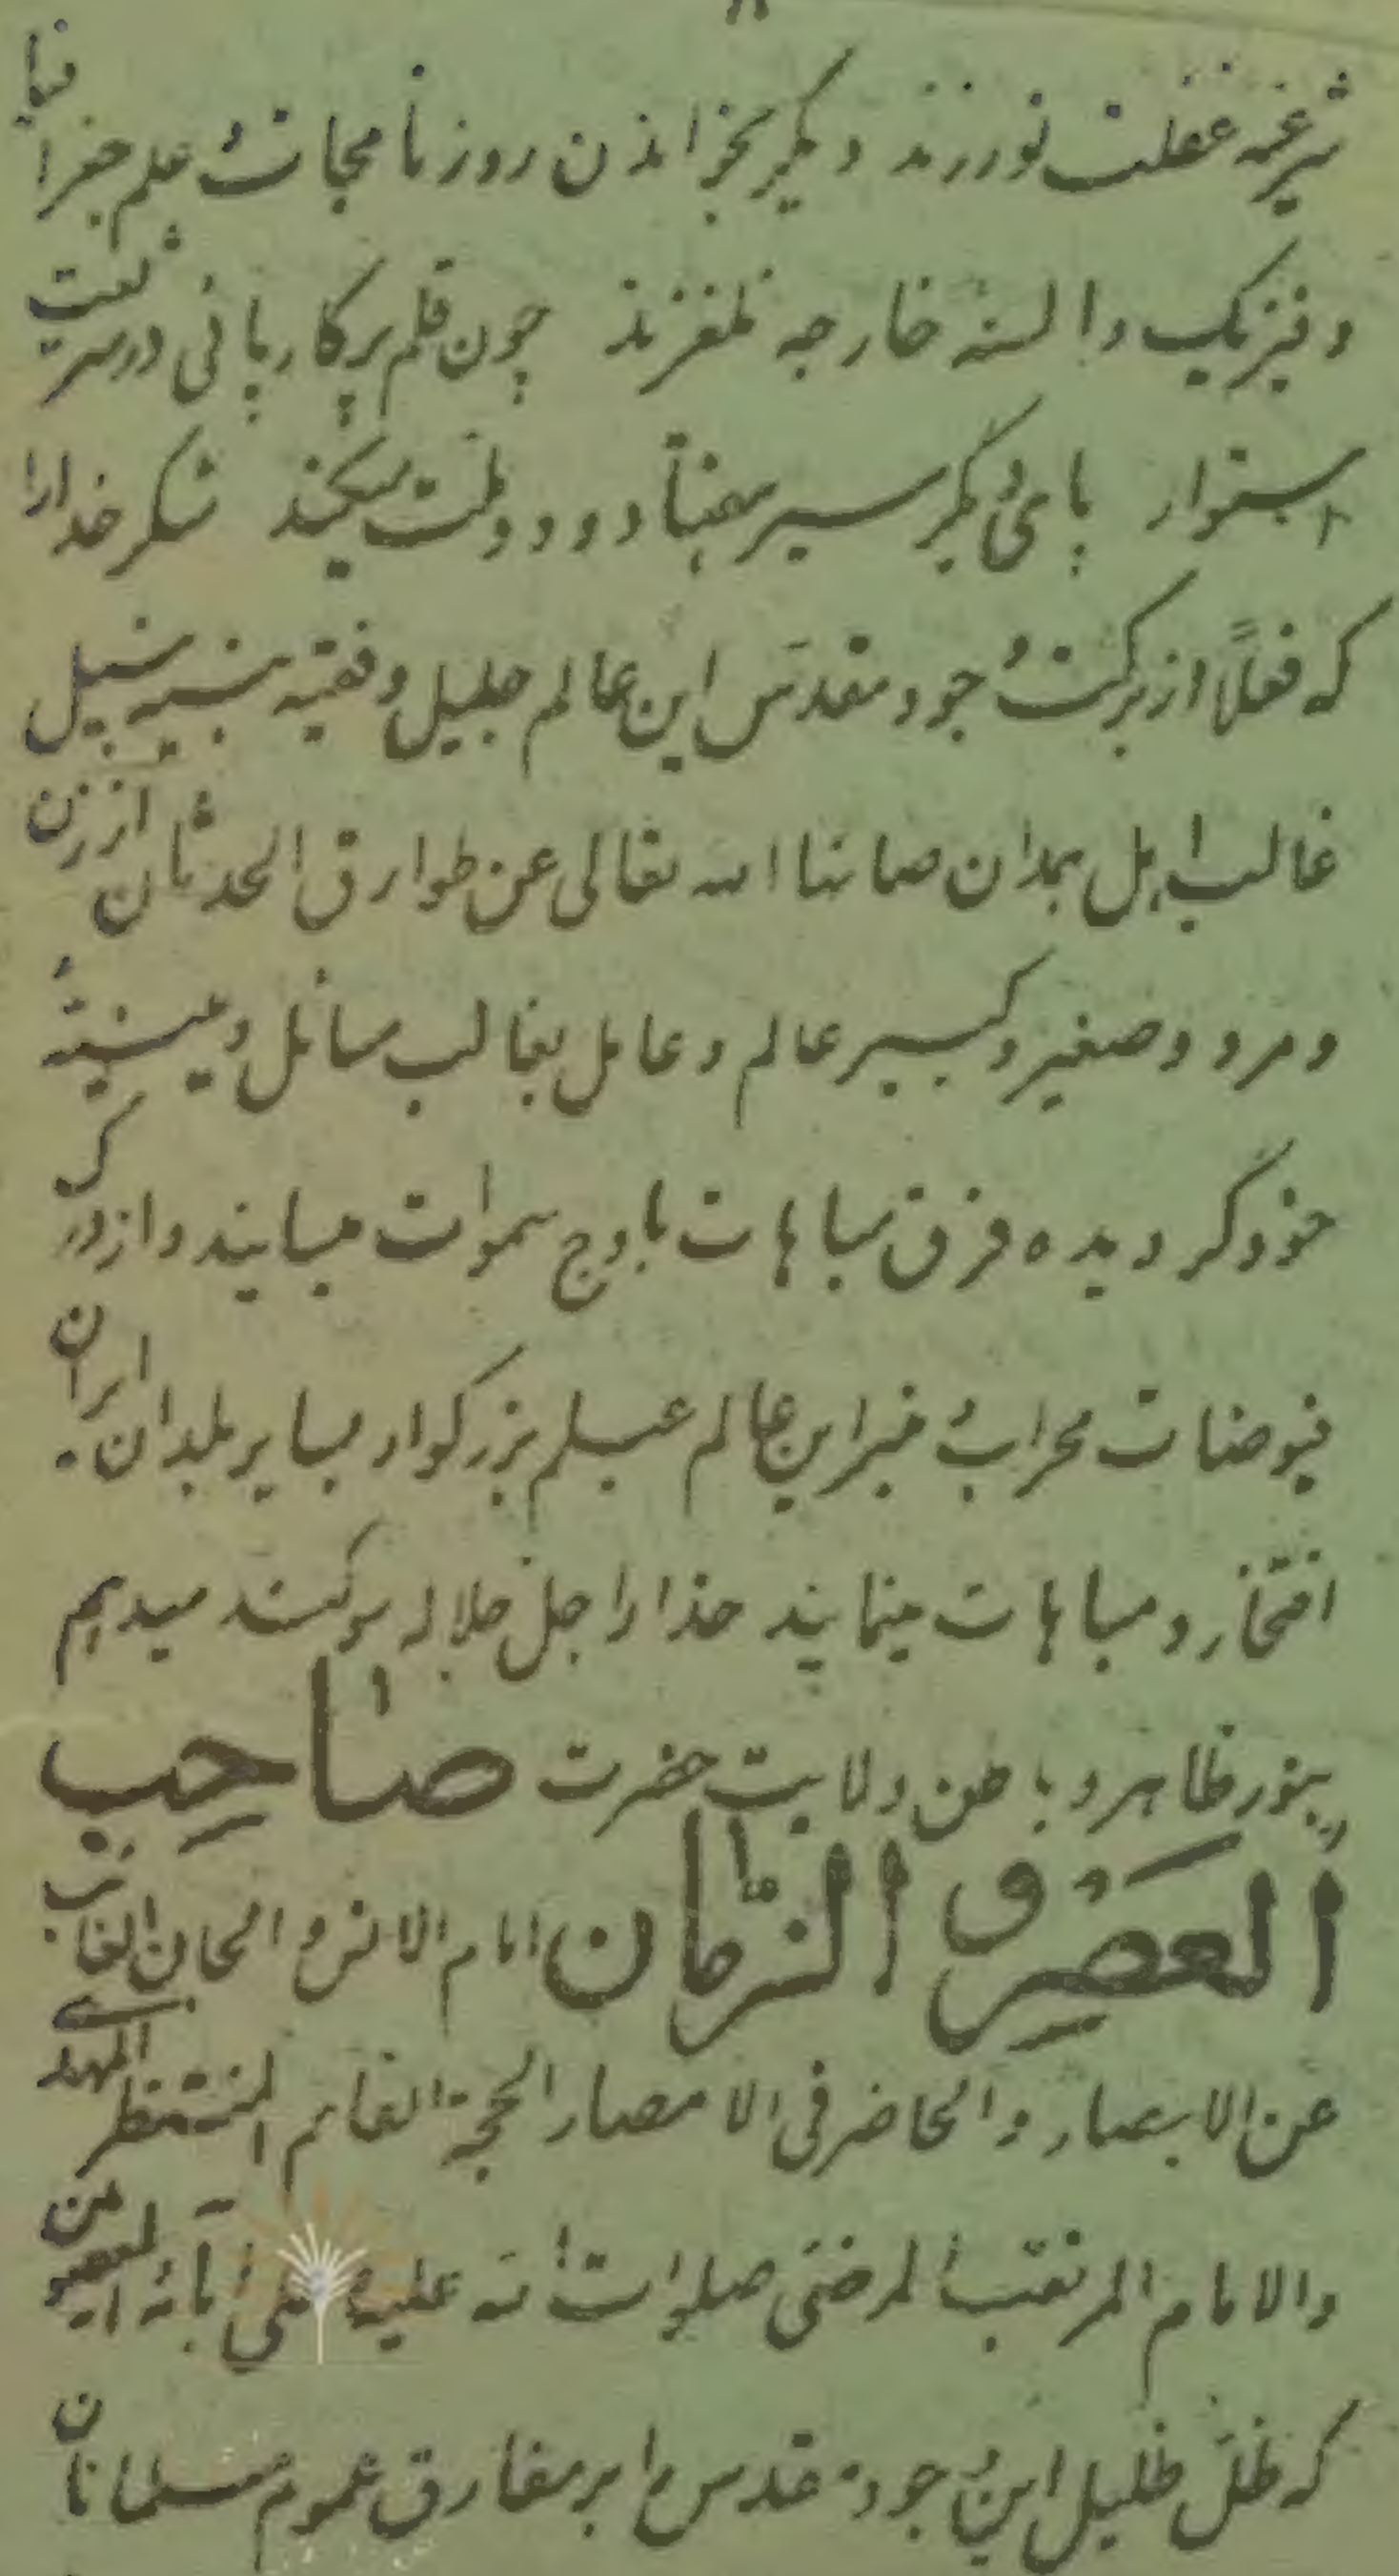 شرعیه غفلت نورزند دیگر بخواندن روزنامجات و علم جغرافیا
و فیزیک و السنه خارجه نلغزند چون قلم پرکار پائی در شریعت
استوار پای دیگر سیر هفتاد و دو ملت میکند شکر خدا را
که فعلاً از برکت وجود مقدس این عالم جلیل و فقیه نبیه نبیل
غالب اهل همدان صانها الله تعالی عن طوارق الحدثان از زن
و مرد و صغیر و کبیر عالم و عامل بغالب مسائل دینیه
خود گردیده فرق مباهات باوج سموات میسایند و از درک
فیوضات محراب و منبر این عالم عیلم بزرگوار بسایر بلدان ایران
افتخار و مباهات مینمایند خدا را جل جلاله سوگند میدهیم
بنور ظاهر و باطن ولایت حضرت صاحب
العصر و الزمان امام الانس و الجان الغائب
عن الابصار و الحاضر فی الامصار الحجة القائم المنتظر المهدی
والامام المرتقب المرضی صلوات الله علیه و علی آبائه المعصومین
که ظل ظلیل این وجود مقدس را بر مفارق عموم مسلمانان